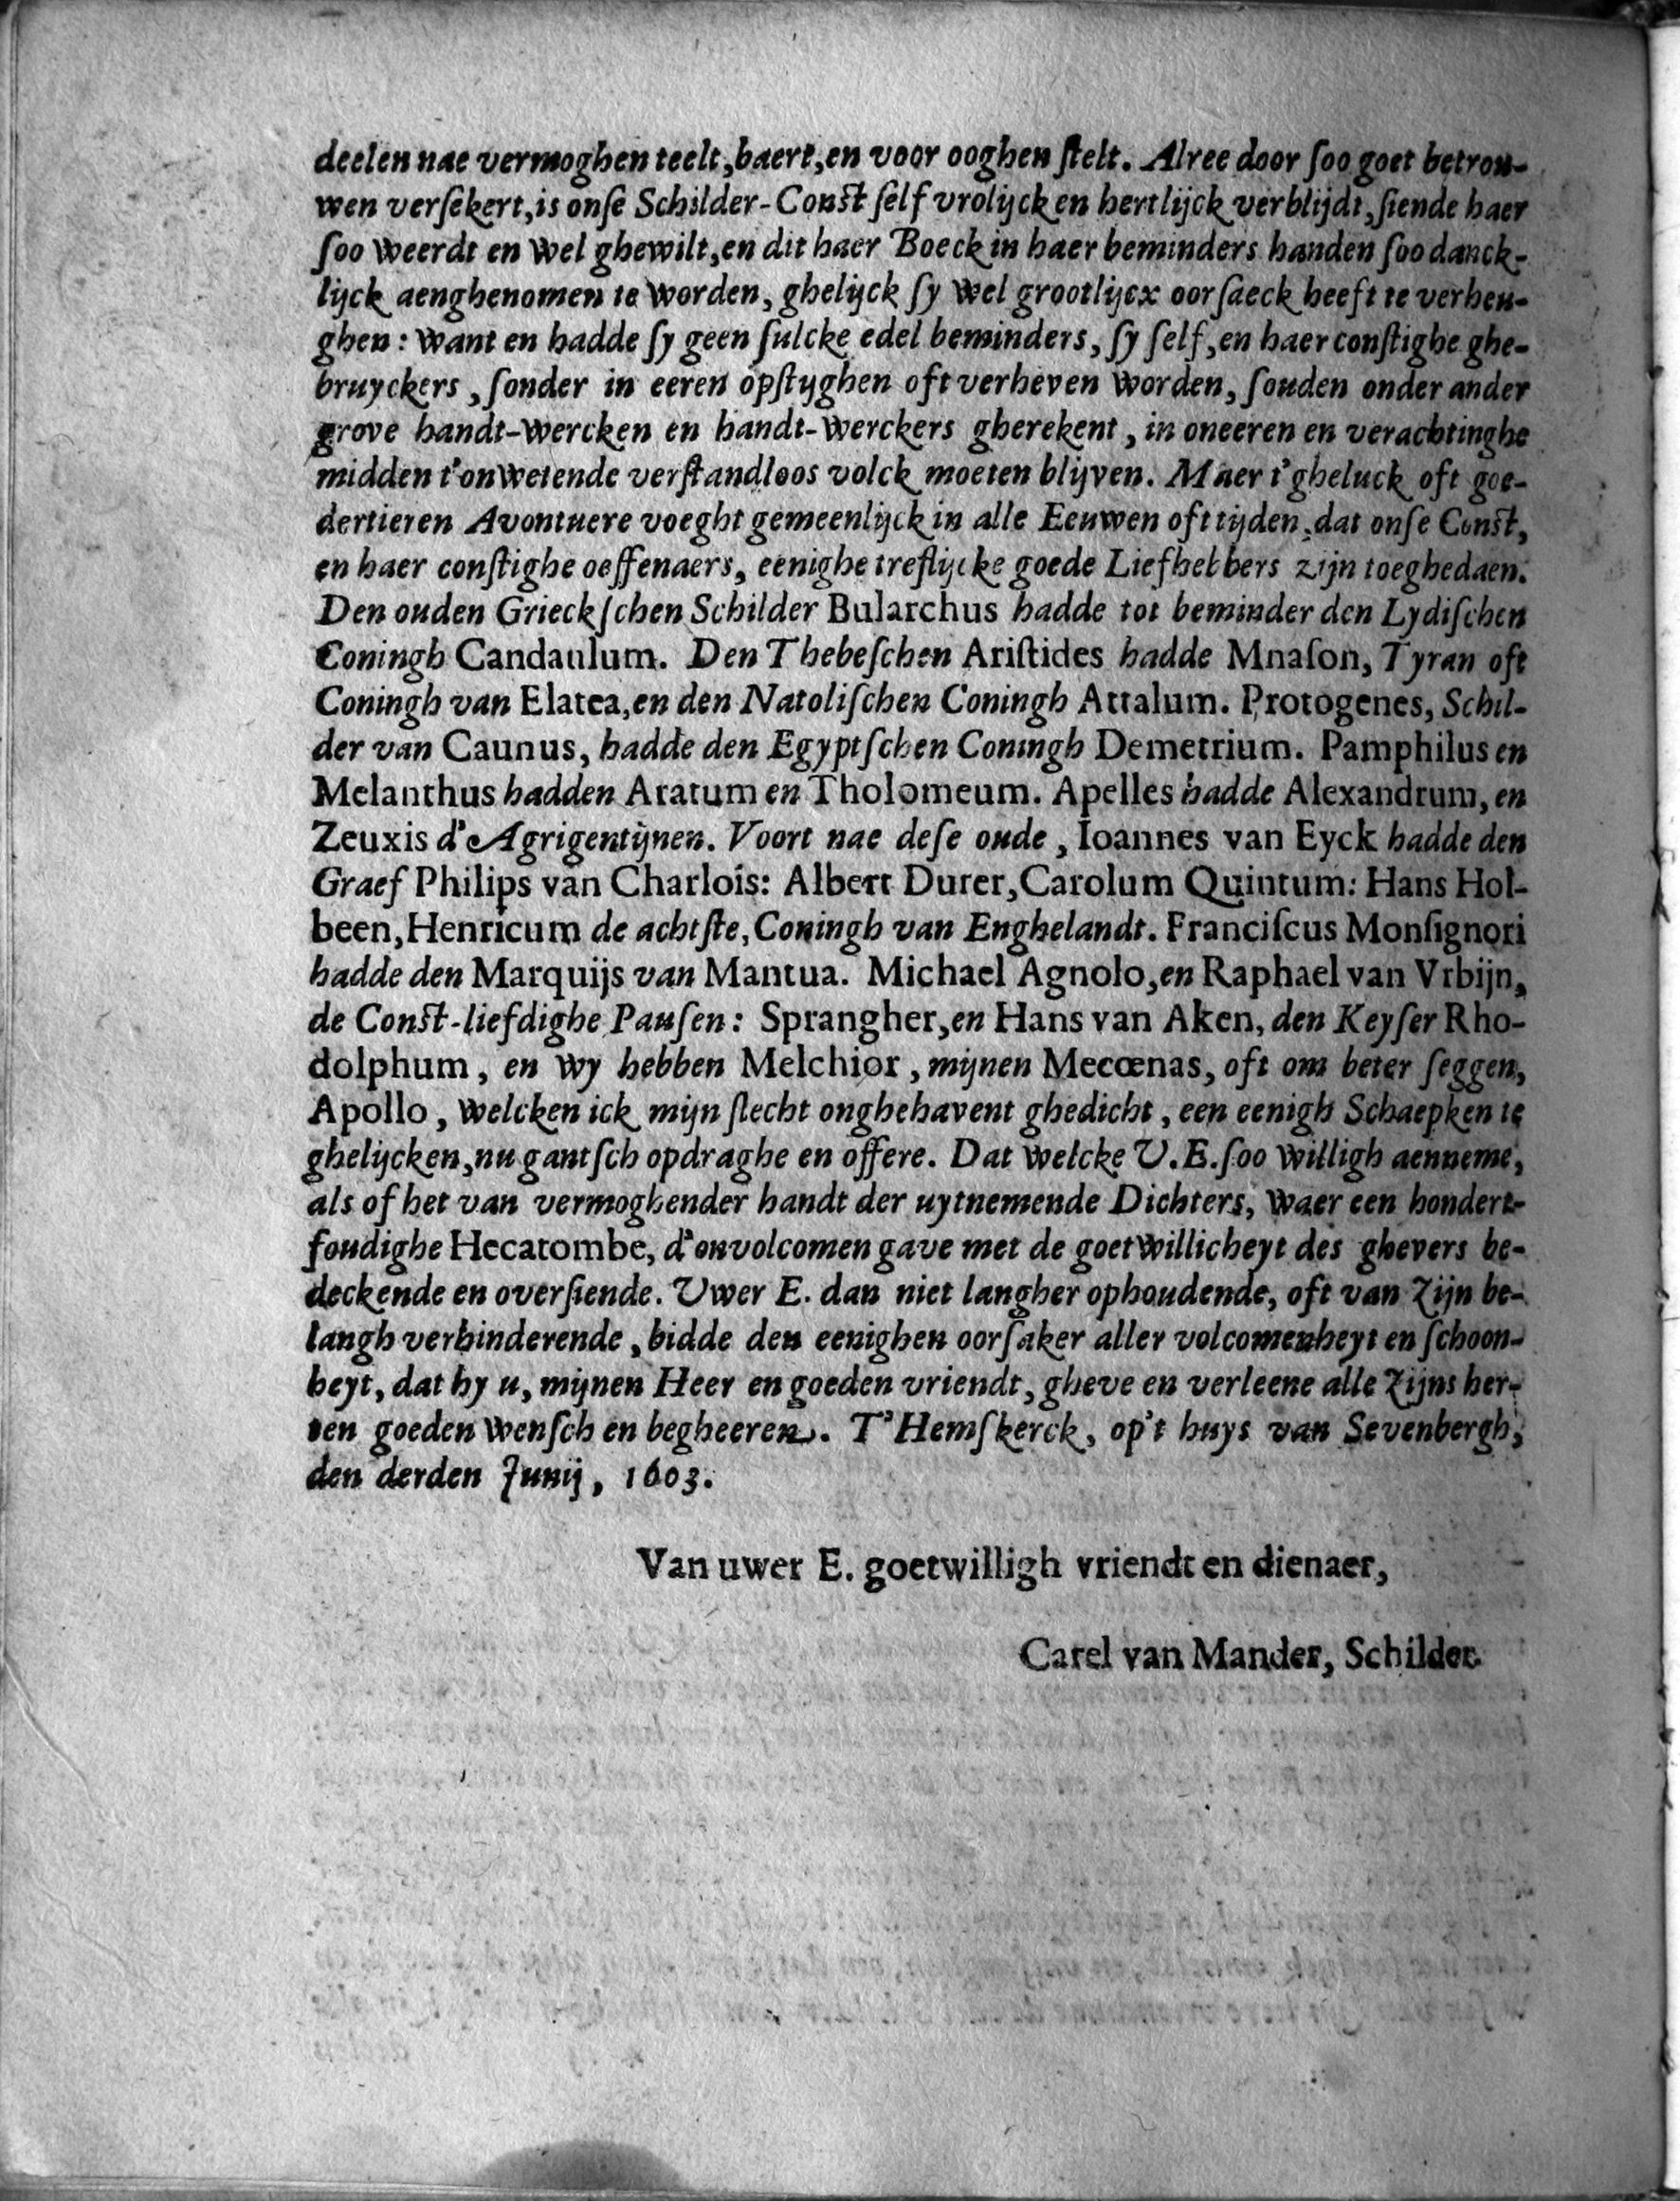 deelen nae vermoghen teelt, baert, en voor ooghen ſtelt. Alree door ſoo goet betrou-
wen verſekert, is onſe Schilder-Conſt ſelf vrolijck en hertlijck verblijdt, ſiende haer
ſoo weerdt en wel ghewilt, en dit haer Boeck in haer beminders handen ſoo danck-
lijck aenghenomen te worden, ghelijck ſy wel grootlijcx oorſaeck heeft te verheu-
ghen: want en hadde ſy geen ſulcke edel beminders, ſy ſelf, en haer conſtighe ghe-
bruyckers, ſonder in eeren opſtyghen oft verheven worden, ſouden onder ander
grove handt-wercken en handt-werckers gherekent, in oneeren en verachtinghe
midden t'onwetende verſtandloos volck moeten blijven. Maer t'gheluck oft goe-
dertieren Avontuere voeght gemeenlijck in alle Eeuwen oft tijden, dat onſe Conſt,
en haer conſtighe oeffenaers, eenighe treflijcke goede Liefhebbers zijn toeghedaen.
Den ouden Grieckſchen Schilder Bularchus hadde tot beminder den Lydiſchen
Coningh Candaulum. Den Thebeſchen Ariſtides hadde Mnaſon, Tyran oft
Coningh van Elatea, en den Natoliſchen Coningh Attalum. Protogenes, Schil-
der van Caunus, hadde den Egyptſchen Coningh Demetrium. Pamphilus en
Melanthus hadden Aratum en Tholomeum. Apelles hadde Alexandrum, en
Zeuxis d'Agrigentijnen. Voort nae deſe oude, Ioannes van Eyck hadde den
Graef Philips van Charlois: Albert Durer, Carolum Quintum: Hans Hol-
been, Henricum de achtſte, Coningh van Enghelandt. Franciſcus Monſignori
hadde den Marquijs van Mantua. Michael Agnolo, en Raphael van Vrbijn,
de Conſt-liefdighe Pauſen: Sprangher, en Hans van Aken, den Keyſer Rho-
dolphum, en wy hebben Melchior, mijnen Mecœnas, oft om beter ſeggen,
Apollo, welcken ick mijn ſlecht onghehavent ghedicht, een eenigh Schaepken te
ghelijcken, nu gantſch opdraghe en offere. Dat welcke V.E. ſoo willigh aenneme,
als of het van vermoghender handt der uytnemende Dichters, waer een hondert-
foudighe Hecatombe, d'onvolcomen gave met de goetwillicheyt des ghevers be-
deckende en overſiende. Uwer E. dan niet langher ophoudende, oft van Zijn be-
langh verhinderende, bidde den eenighen oorſaker aller volcomenheyt en ſchoon-
heyt, dat hy u, mijnen Heer en goeden vriendt, gheve en verleene alle Zijns her-
ten goeden wenſch en begheeren. T'Hemſkerck, op't huys van Sevenbergh,
den derden Junij, 1603.
Van uwer E. goetwilligh vriendt en dienaer,
Carel van Mander, Schilder.